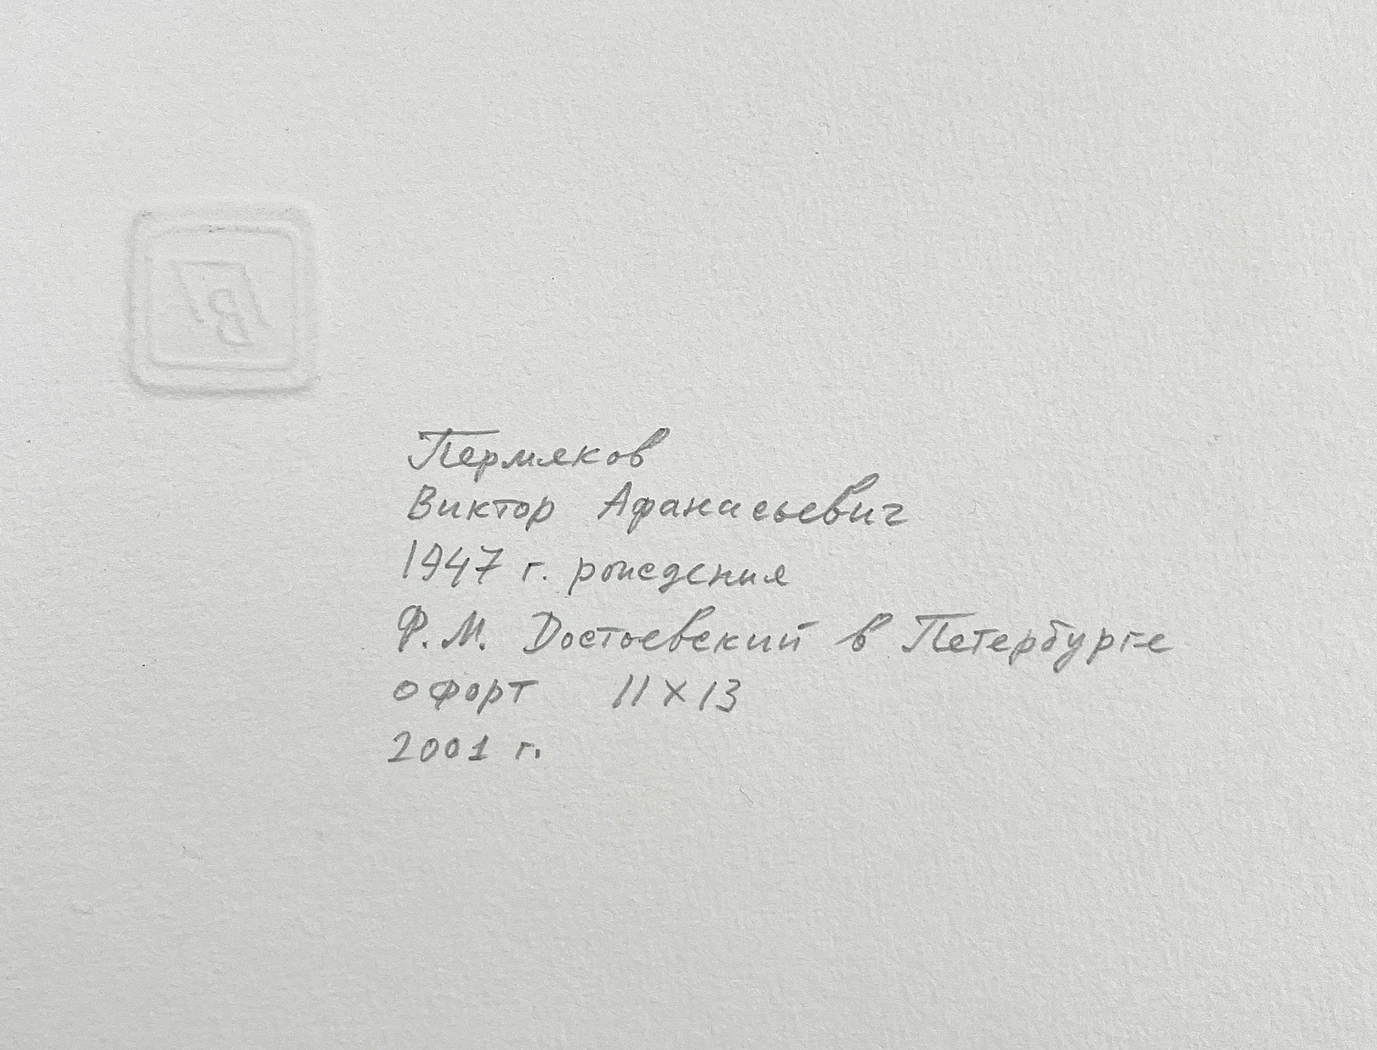 Пермяков
Виктор Афанасьевич
1947 г. рождения
Ф.М. Достоевский в Петербурге
офорт 11 х 13
2001 г.